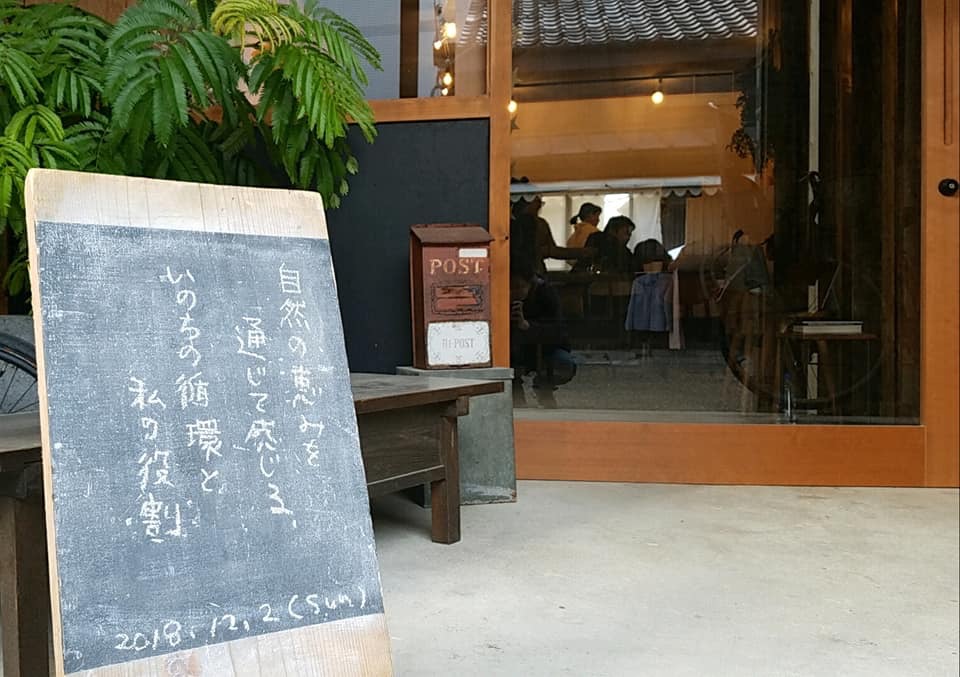 自然の恵みを
通じて感じる
いのちの循環と
私の役割
2018.12.2(Sun)
POST
BI-POST